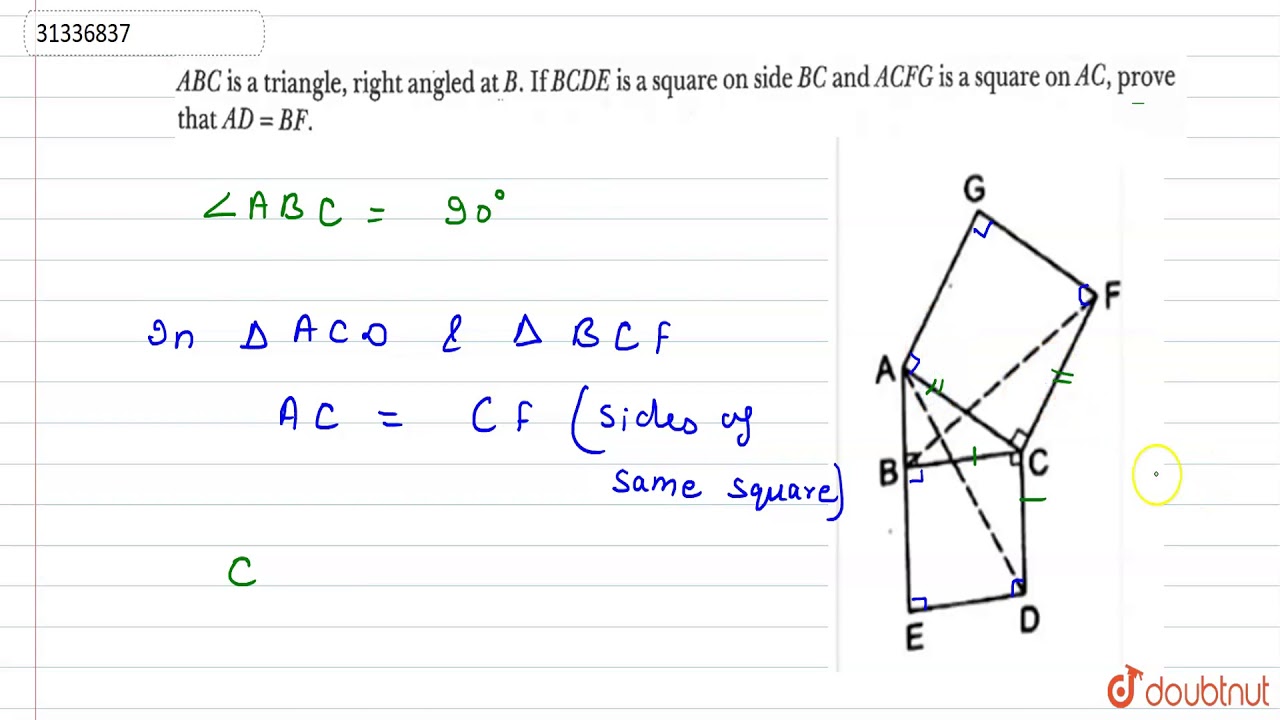 31336837
ABC is a triangle, right angled at B. If BCDE is a square on side BC and ACFG is a square on AC, prove
that AD = BF.
∠ABC = 90°
In Δ ACD & Δ BCF
AC = CF (sides of
same square)
C
G
F
A
B
C
E
D
doubtnut